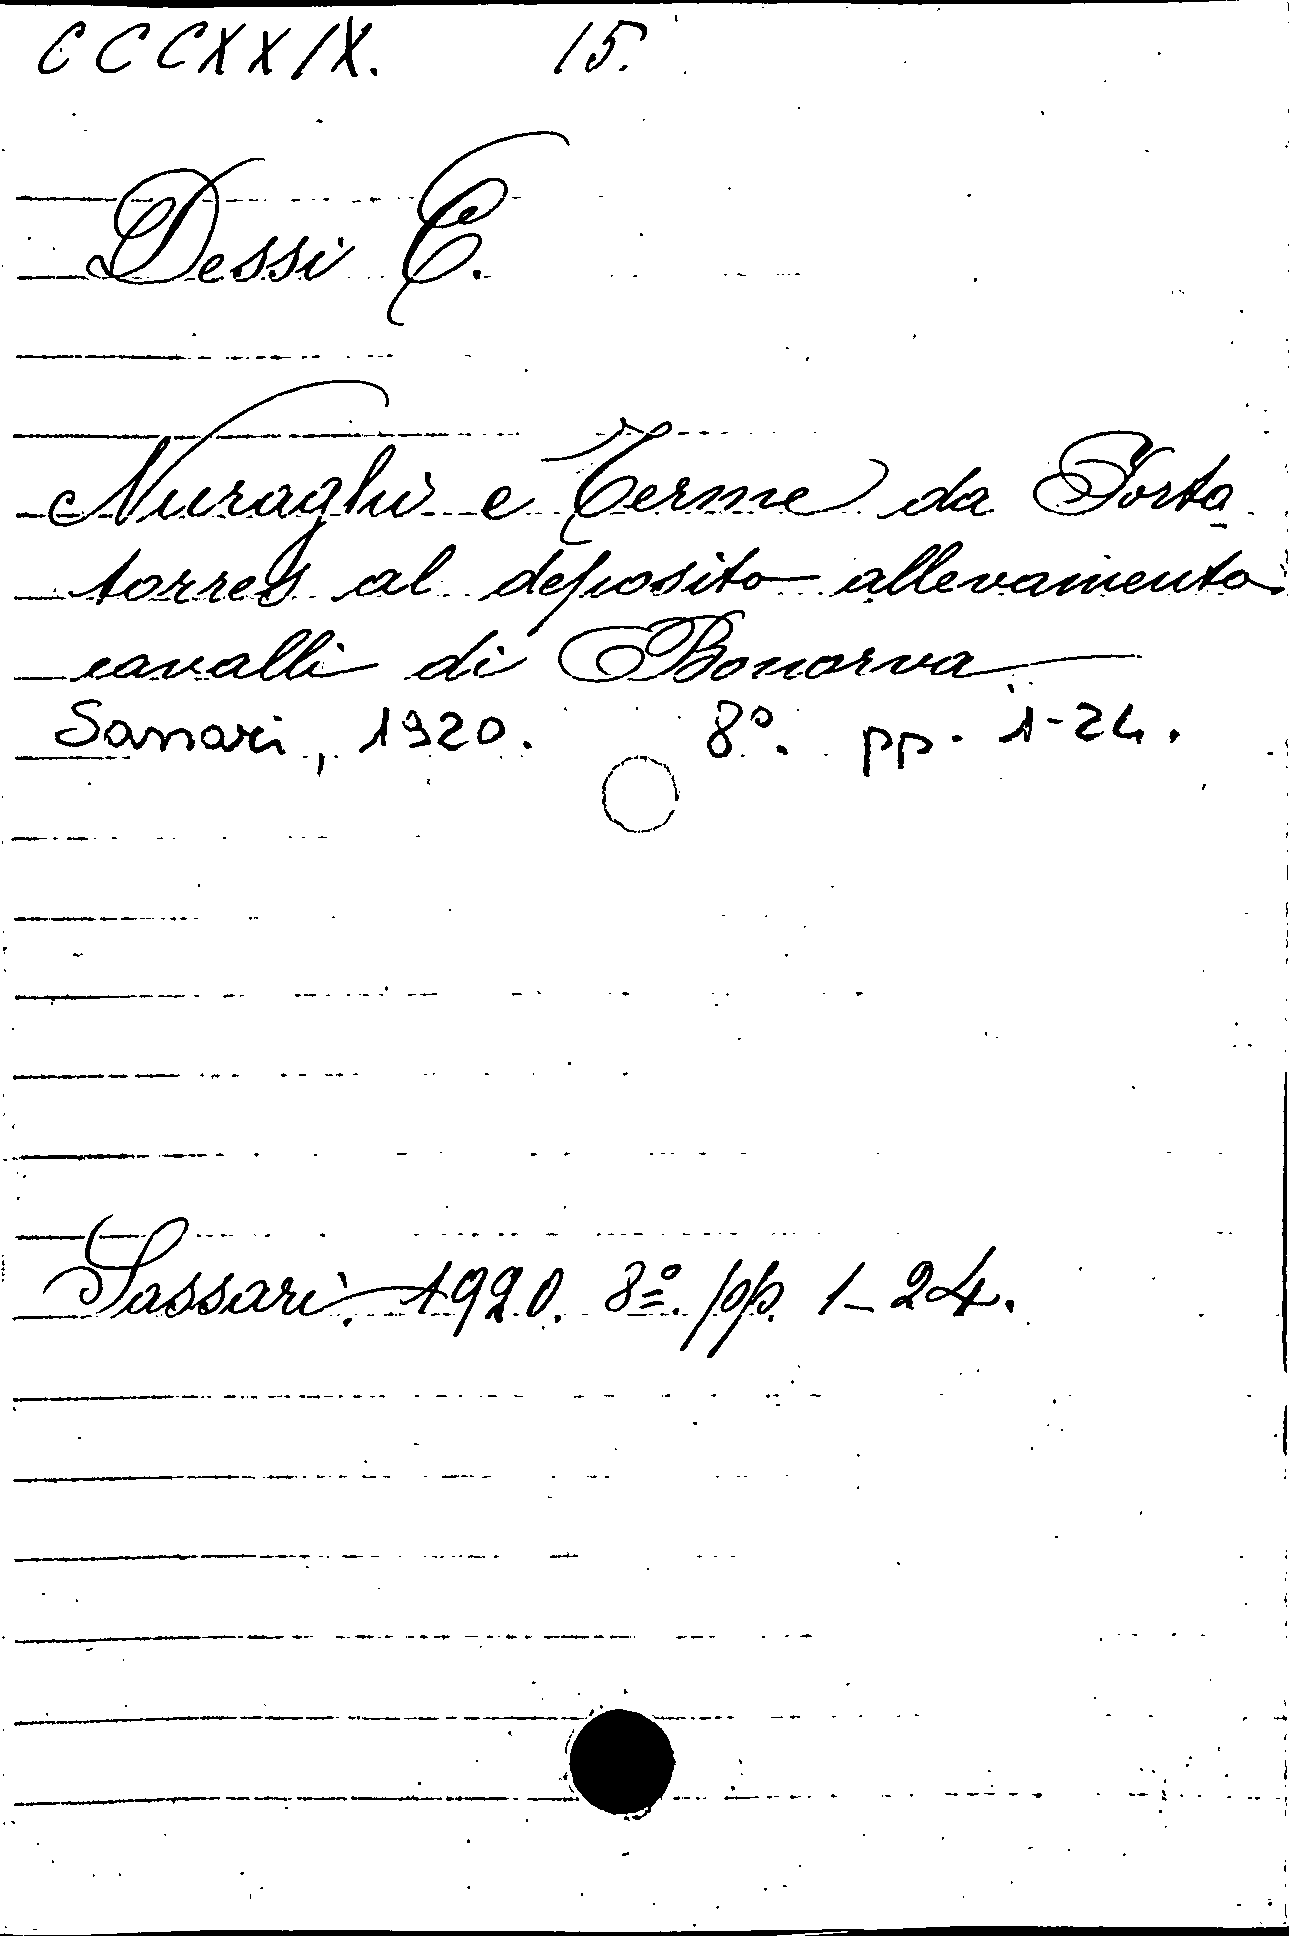 CCCXXIX. 15.
Dessi E.
Nuraghi e Terme da Porto
torres al deposito allevamento
cavalli di Bonorva
Sassari, 1920. 8º. pp. 1-24.
Sassari. 1920. 8º. pp. 1-24.